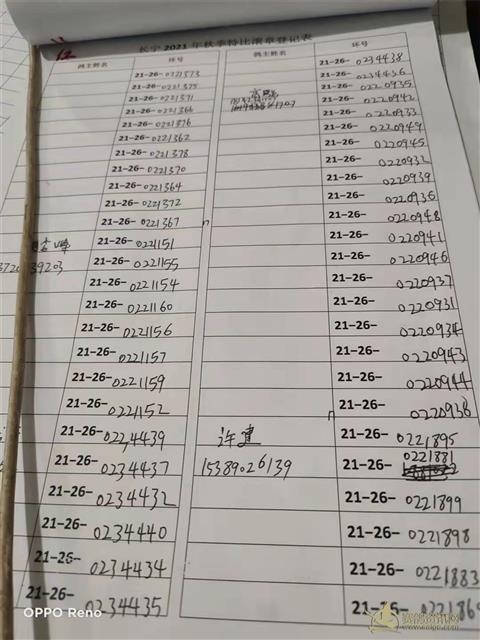 长宁 2021 年秋季特比滴章登记表
鸽主姓名 环号 鸽主姓名 环号
21-26-0221373
21-26-0221375
21-26-0221371
21-26-0221366
21-26-0221376
21-26-0221362
21-26-0221378
21-26-0221370
21-26-0221364
21-26-0221372
21-26-0221367
21-26-0221151
21-26-0221155
21-26-0221154
21-26-0221160
21-26-0221156
21-26-0221157
21-26-0221159
21-26-0221152
21-26-0234439
21-26-0234437
21-26-0234432
21-26-0234440
21-26-0234434
21-26-0234435
39203
21-26-0234438
21-26-0234436
21-26-0220935
21-26-0220942
21-26-0220933
21-26-0220949
21-26-0220945
21-26-0220932
21-26-0220939
21-26-0220936
21-26-0220948
21-26-0220941
21-26-0220946
21-26-0220937
21-26-0220931
21-26-0220934
21-26-0220943
21-26-0220944
21-26-0220938
许建 21-26-0221895
15389026139 21-26-0221881
21-26-0221899
21-26-0221898
21-26-0221883
21-26-022186
OPPO Reno